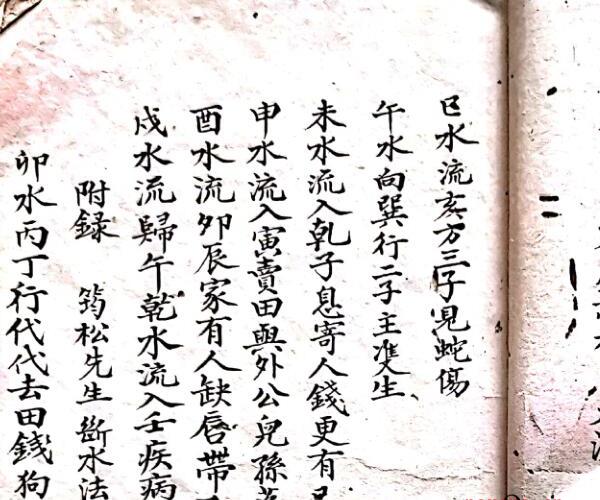 巳水流亥方三子見蛇傷
午水向巽行二子主雙生
未水流入乾子息寄人錢更有
申水流入寅賣田與外公兒孫
酉水流卯辰家有人缺唇帶
戌水流歸午乾水流入壬疾病
附録 筠松先生斷水法
卯水丙丁行代代去田錢狗